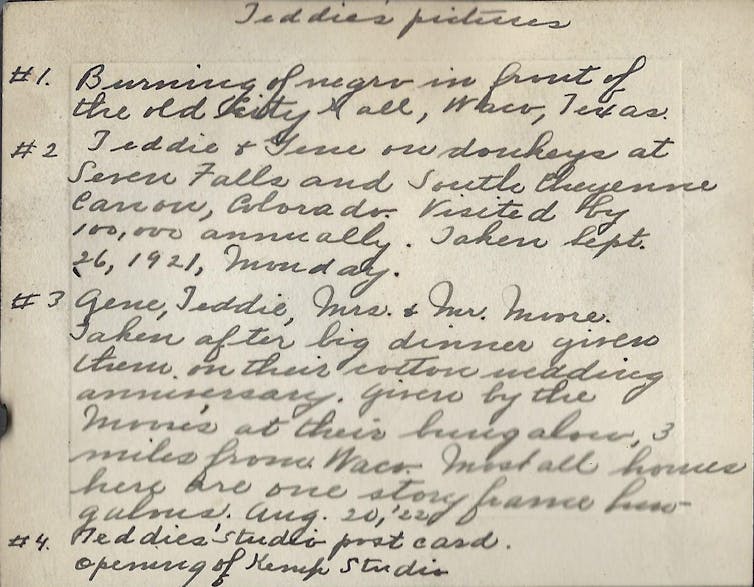 Teddie's pictures
#1. Burning of negro in front of
the old City Hall, Waco, Texas.
#2 Teddie & Gene on donkeys at
Seven Falls and South Cheyenne
Canon, Colorado. Visited by
100,000 annually. Taken Sept.
26, 1921, Monday.
#3 Gene, Teddie, Mrs. & Mr. Moore.
Taken after big dinner given
them on their cotton wedding
anniversary. Given by the
Moore's at their bungalow, 3
miles from Waco. Most all homes
here are one story frame bun-
galows. Aug. 20, '22
#4. Teddies' studio post card.
opening of Kemp Studio